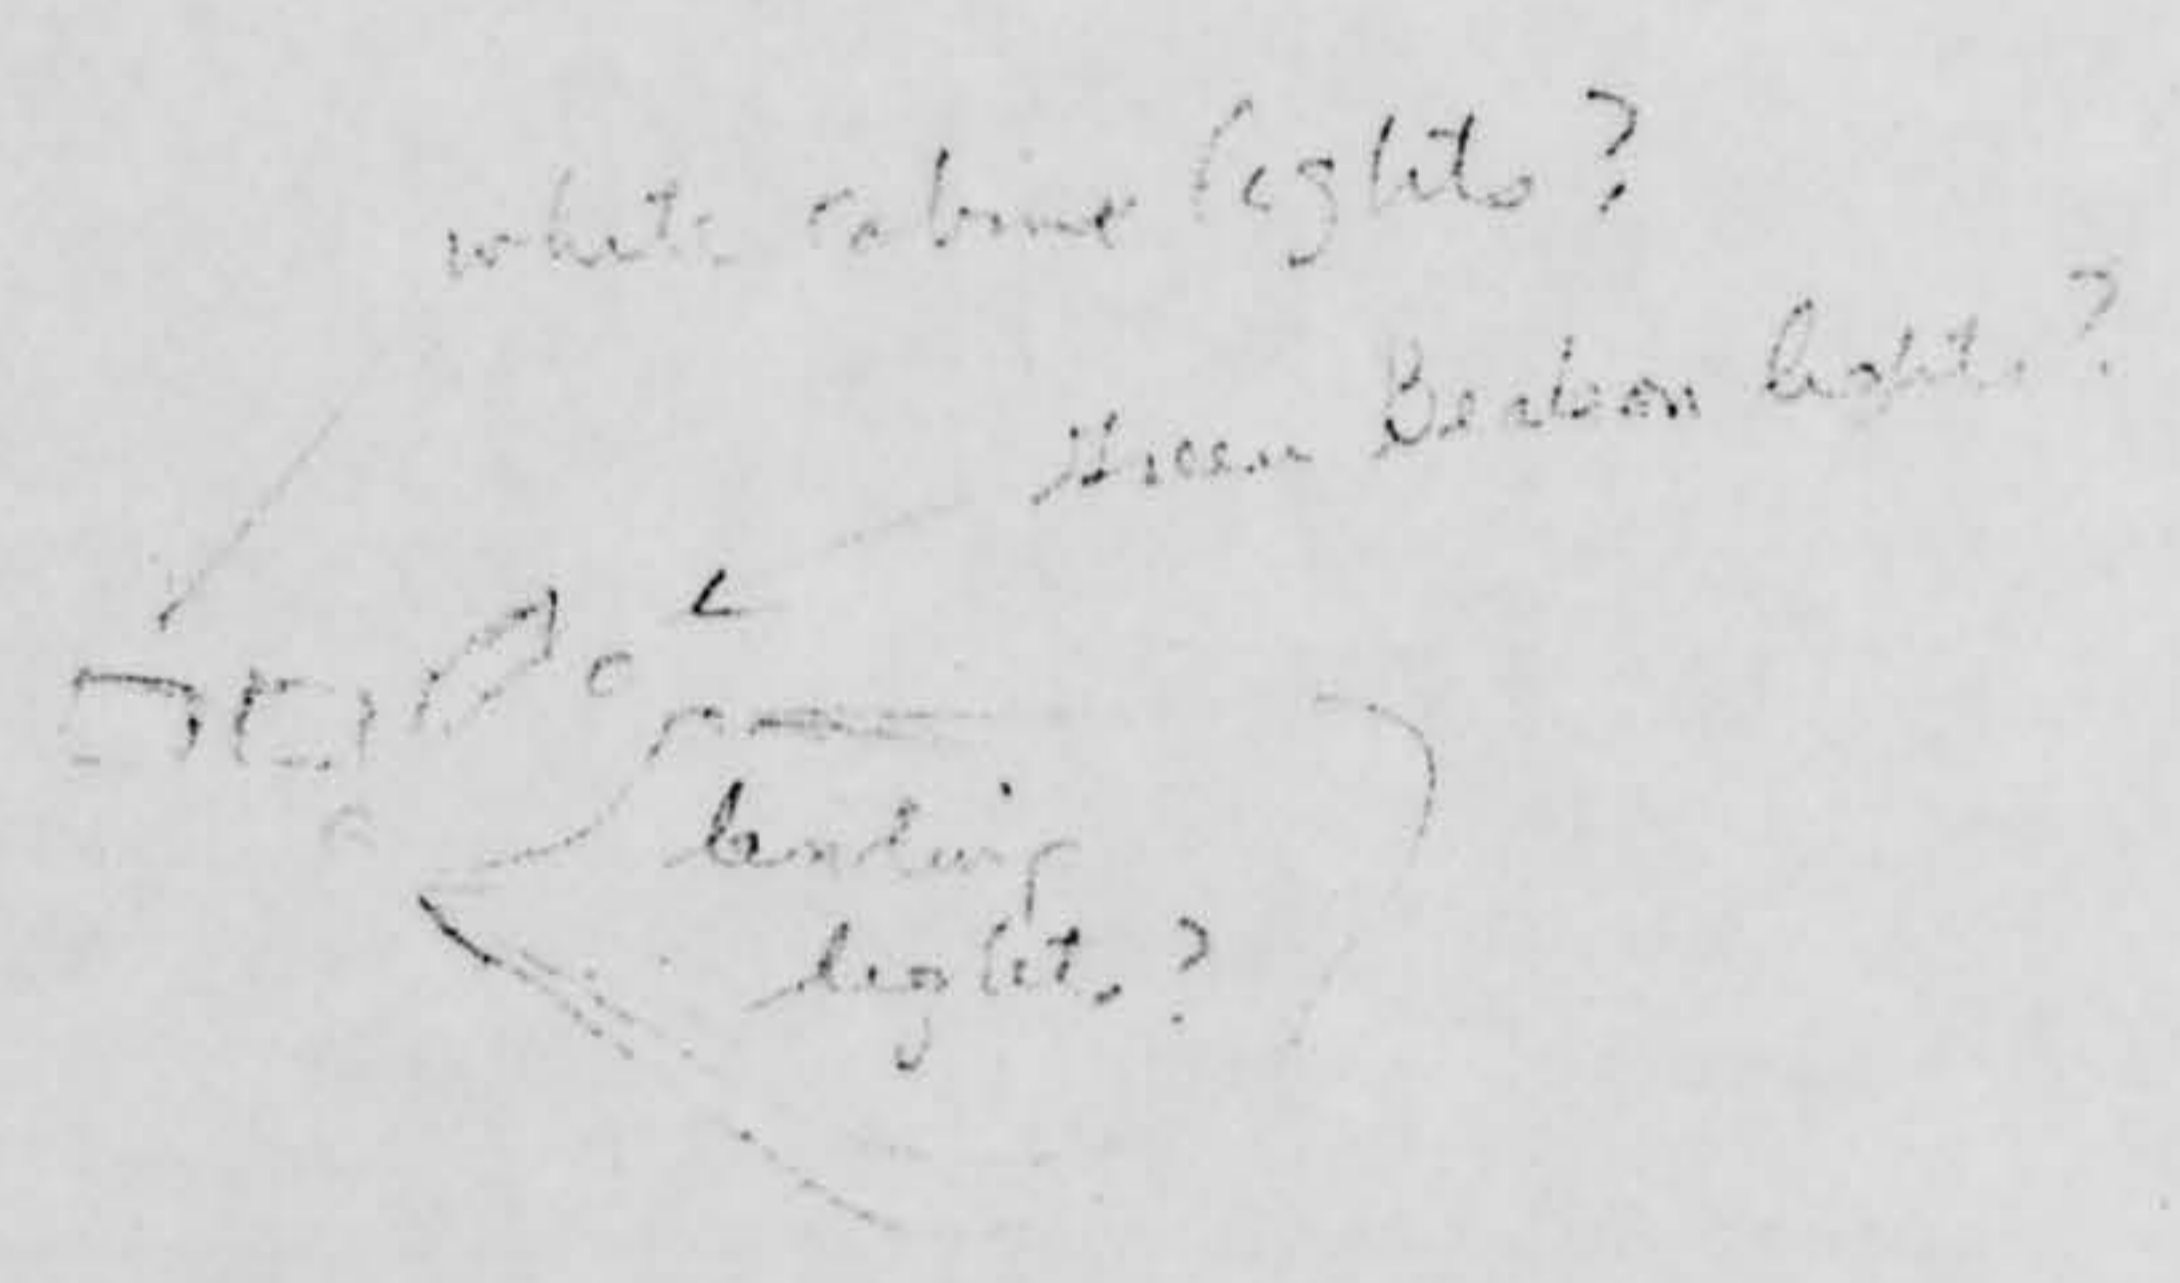 white cabine lights?
Green Beacon lights?
landing
lights?